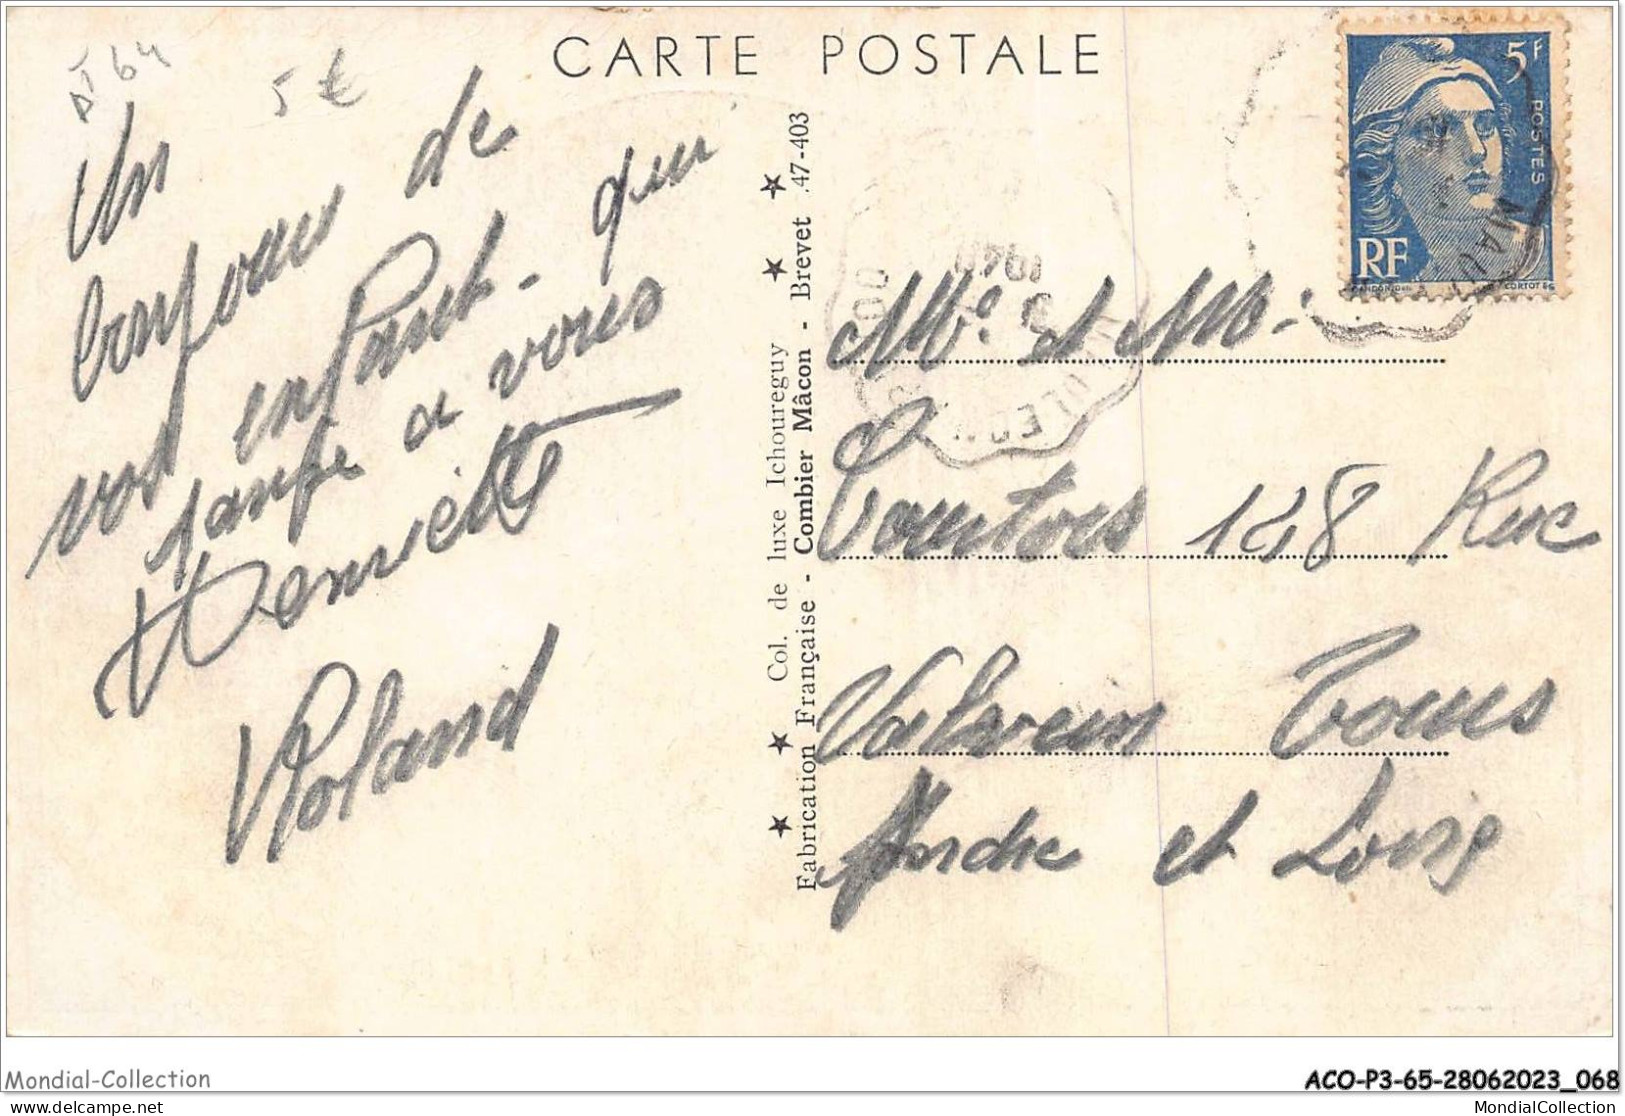 D 64
5 €
CARTE POSTALE
5F
POSTES
RF
CORTOT
Un
bonjour de
vos enfant - qui
panse a vous
Henriette
Roland
Col. de luxe Ichoureguy
Fabrication Française - Combier Mâcon - Brevet 47-403
Mr. et Mm.
Courtois 148 Rue
Valsreus Tours
Andre et Loise
Mondial-Collection
ACO-P3-65-28062023_068
delcampe.net
MondialCollection